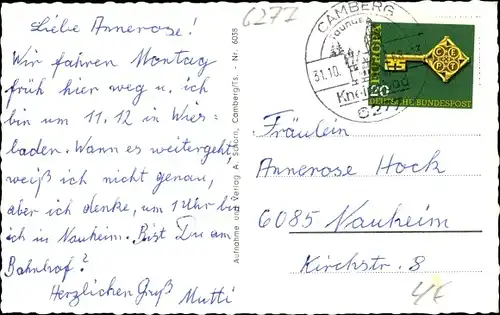 Liebe Annerose!
Wir fahren Montag
früh hier weg u. ich
bin um 11.12 in Wies-
baden. Wann es weitergeht,
weiß ich nicht genau,
aber ich denke, um 1 Uhr bin
ich in Nauheim. Bist Du am
Bahnhof?
Herzlichen Gruß
Mutti
6277
Aufnahme und Verlag A. Schorn, Camberg/Ts. - Nr. 6058
CAMBERG
31.10.
Kneippbad
6277
EUROPA
CEPT
20
DEUTSCHE BUNDESPOST
Fräulein
Annerose Hock
6085 Nauheim
Kirchstr. 8